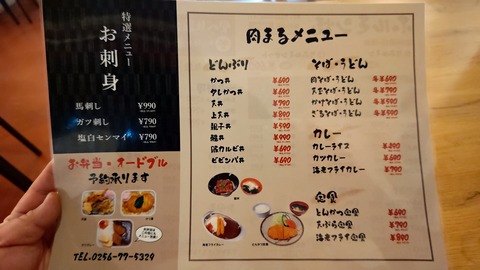 特選メニュー
お刺身
馬刺し ¥990
ガツ刺し ¥790
塩白センマイ ¥790
お弁当・オードブル
予約承ります
TEL.0256-77-5329
肉まるメニュー
どんぶり
かつ丼 ¥690
タレかつ丼 ¥690
天丼 ¥790
上天丼 ¥890
親子丼 ¥590
豚丼 ¥690
豚カルビ丼 ¥690
ビビンバ丼 ¥690
そば・うどん
肉そば・うどん 各¥690
天ざそば・うどん 各¥790
かけそば・うどん 各¥590
ざるそば・うどん 各¥590
カレー
カレーライス ¥490
カツカレー ¥690
海老フライカレー ¥790
定食
とんかつ定食 ¥690
天ぷら定食 ¥790
海老フライ定食 ¥890